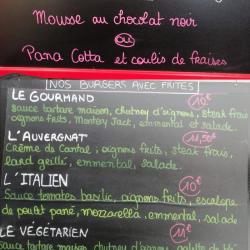 Mousse au chocolat noir
ou
Pana Cotta et coulis de fraises
NOS BURGERS AVEC FRITES
LE GOURMAND 10€
Sauce tartare maison, chutney d'oignons, steak frais
oignons frits, Montery Jact, emmental et salade.
L'AUVERGNAT 11,50€
Crème de Cantal, oignons frits, steak frais,
lard grillé, emmental, salade.
L'ITALIEN 10€
Sauce tomates basilic, oignons frits, escalope
de poulet pané, mozzarella, emmental, salade
LE VEGETARIEN 11€
Sauce tartare maison, chutney d'oignons,